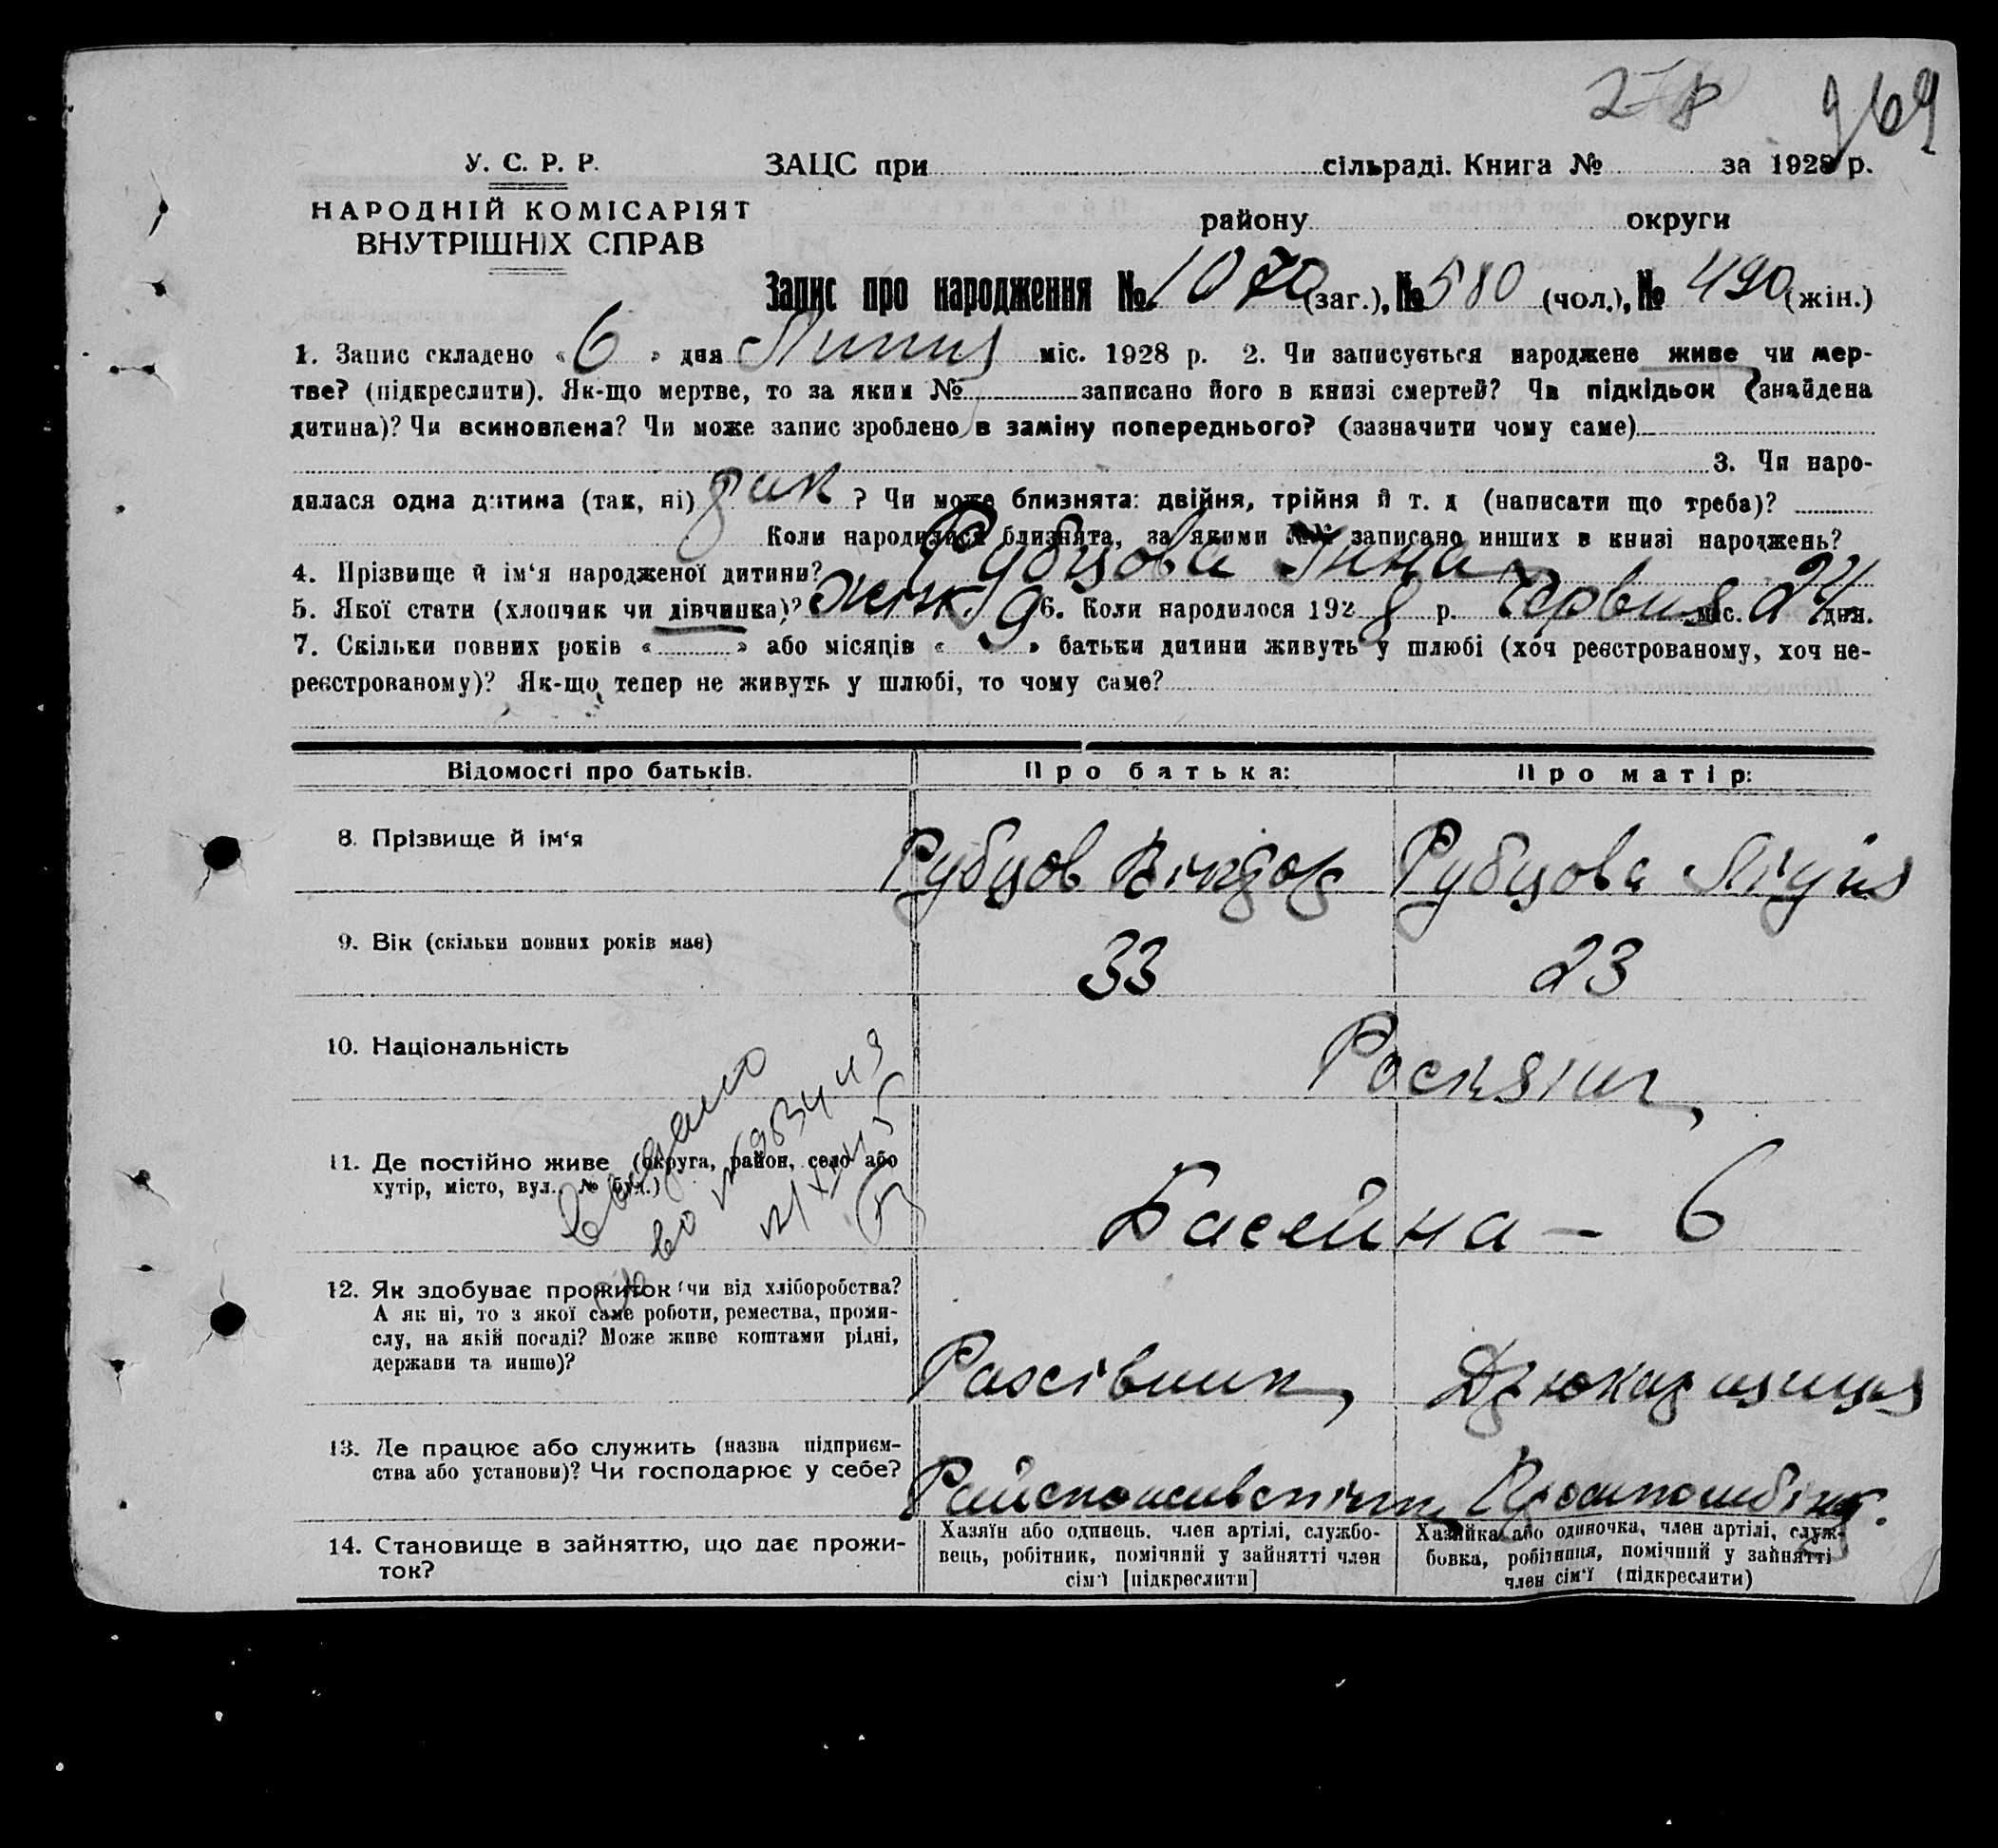 969
У. С. Р. Р.
НАРОДНІЙ КОМІСАРІЯТ
ВНУТРІШНІХ СПРАВ
ЗАЦС при сільраді. Книга № за 1928 р.
району округи
Запис про народження № 1070 (заг.), № 580 (чол.), № 490 (жін.)
1. Запис складено « 6 » дня Липня міс. 1928 р. 2. Чи записується народжене живе чи мер-
тве? (підкреслити). Як-що мертве, то за яким № записано його в книзі смертей? Чи підкідьок (знайдена
дитина)? Чи всиновлена? Чи може запис зроблено в заміну попереднього? (зазначити чому саме)
3. Чи наро-
дилася одна дитина (так, ні) так ? Чи може близнята: двійня, трійня й т. д (написати що треба)?
Коли народилися близнята, за якими №№ записано инших в книзі народжень?
4. Прізвище й ім‘я народженої дитини? Рубцова Інна
5. Якої стати (хлопчик чи дівчинка)? жінк. 6. Коли народилося 1928 р. Червня міс. 24 дня.
7. Скільки повних років « » або місяців « 9 » батьки дитини живуть у шлюбі (хоч реєстрованому, хоч не-
реєстрованому)? Як-що тепер не живуть у шлюбі, то чому саме?
Відомості про батьків. Про батька: Про матір:
8. Прізвище й ім‘я Рубцов Віктор Рубцова Лідія
9. Вік (скільки повних років має) 33 23
10. Національність Росияни
11. Де постійно живе (округа, район, село або
хутір, місто, вул. № буд.) Басейна – 6
12. Як здобуває прожиток (чи від хліборобства?
А як ні, то з якої саме роботи, ремества, проми-
слу, на якій посаді? Може живе коштами рідні,
держави та инше)? Рахівник,
13. Де працює або служить (назва підприєм-
ства або установи)? Чи господарює у себе?
14. Становище в зайняттю, що дає прожи-
ток?
Хазяїн або одинець, член артілі, службо-
вець, робітник, помічний у зайнятті член
сім‘ї [підкреслити]
Хазяйка або одиночка, член артілі, служ-
бовка, робітниця, помічний у зайнятті
член сім‘ї (підкреслити)